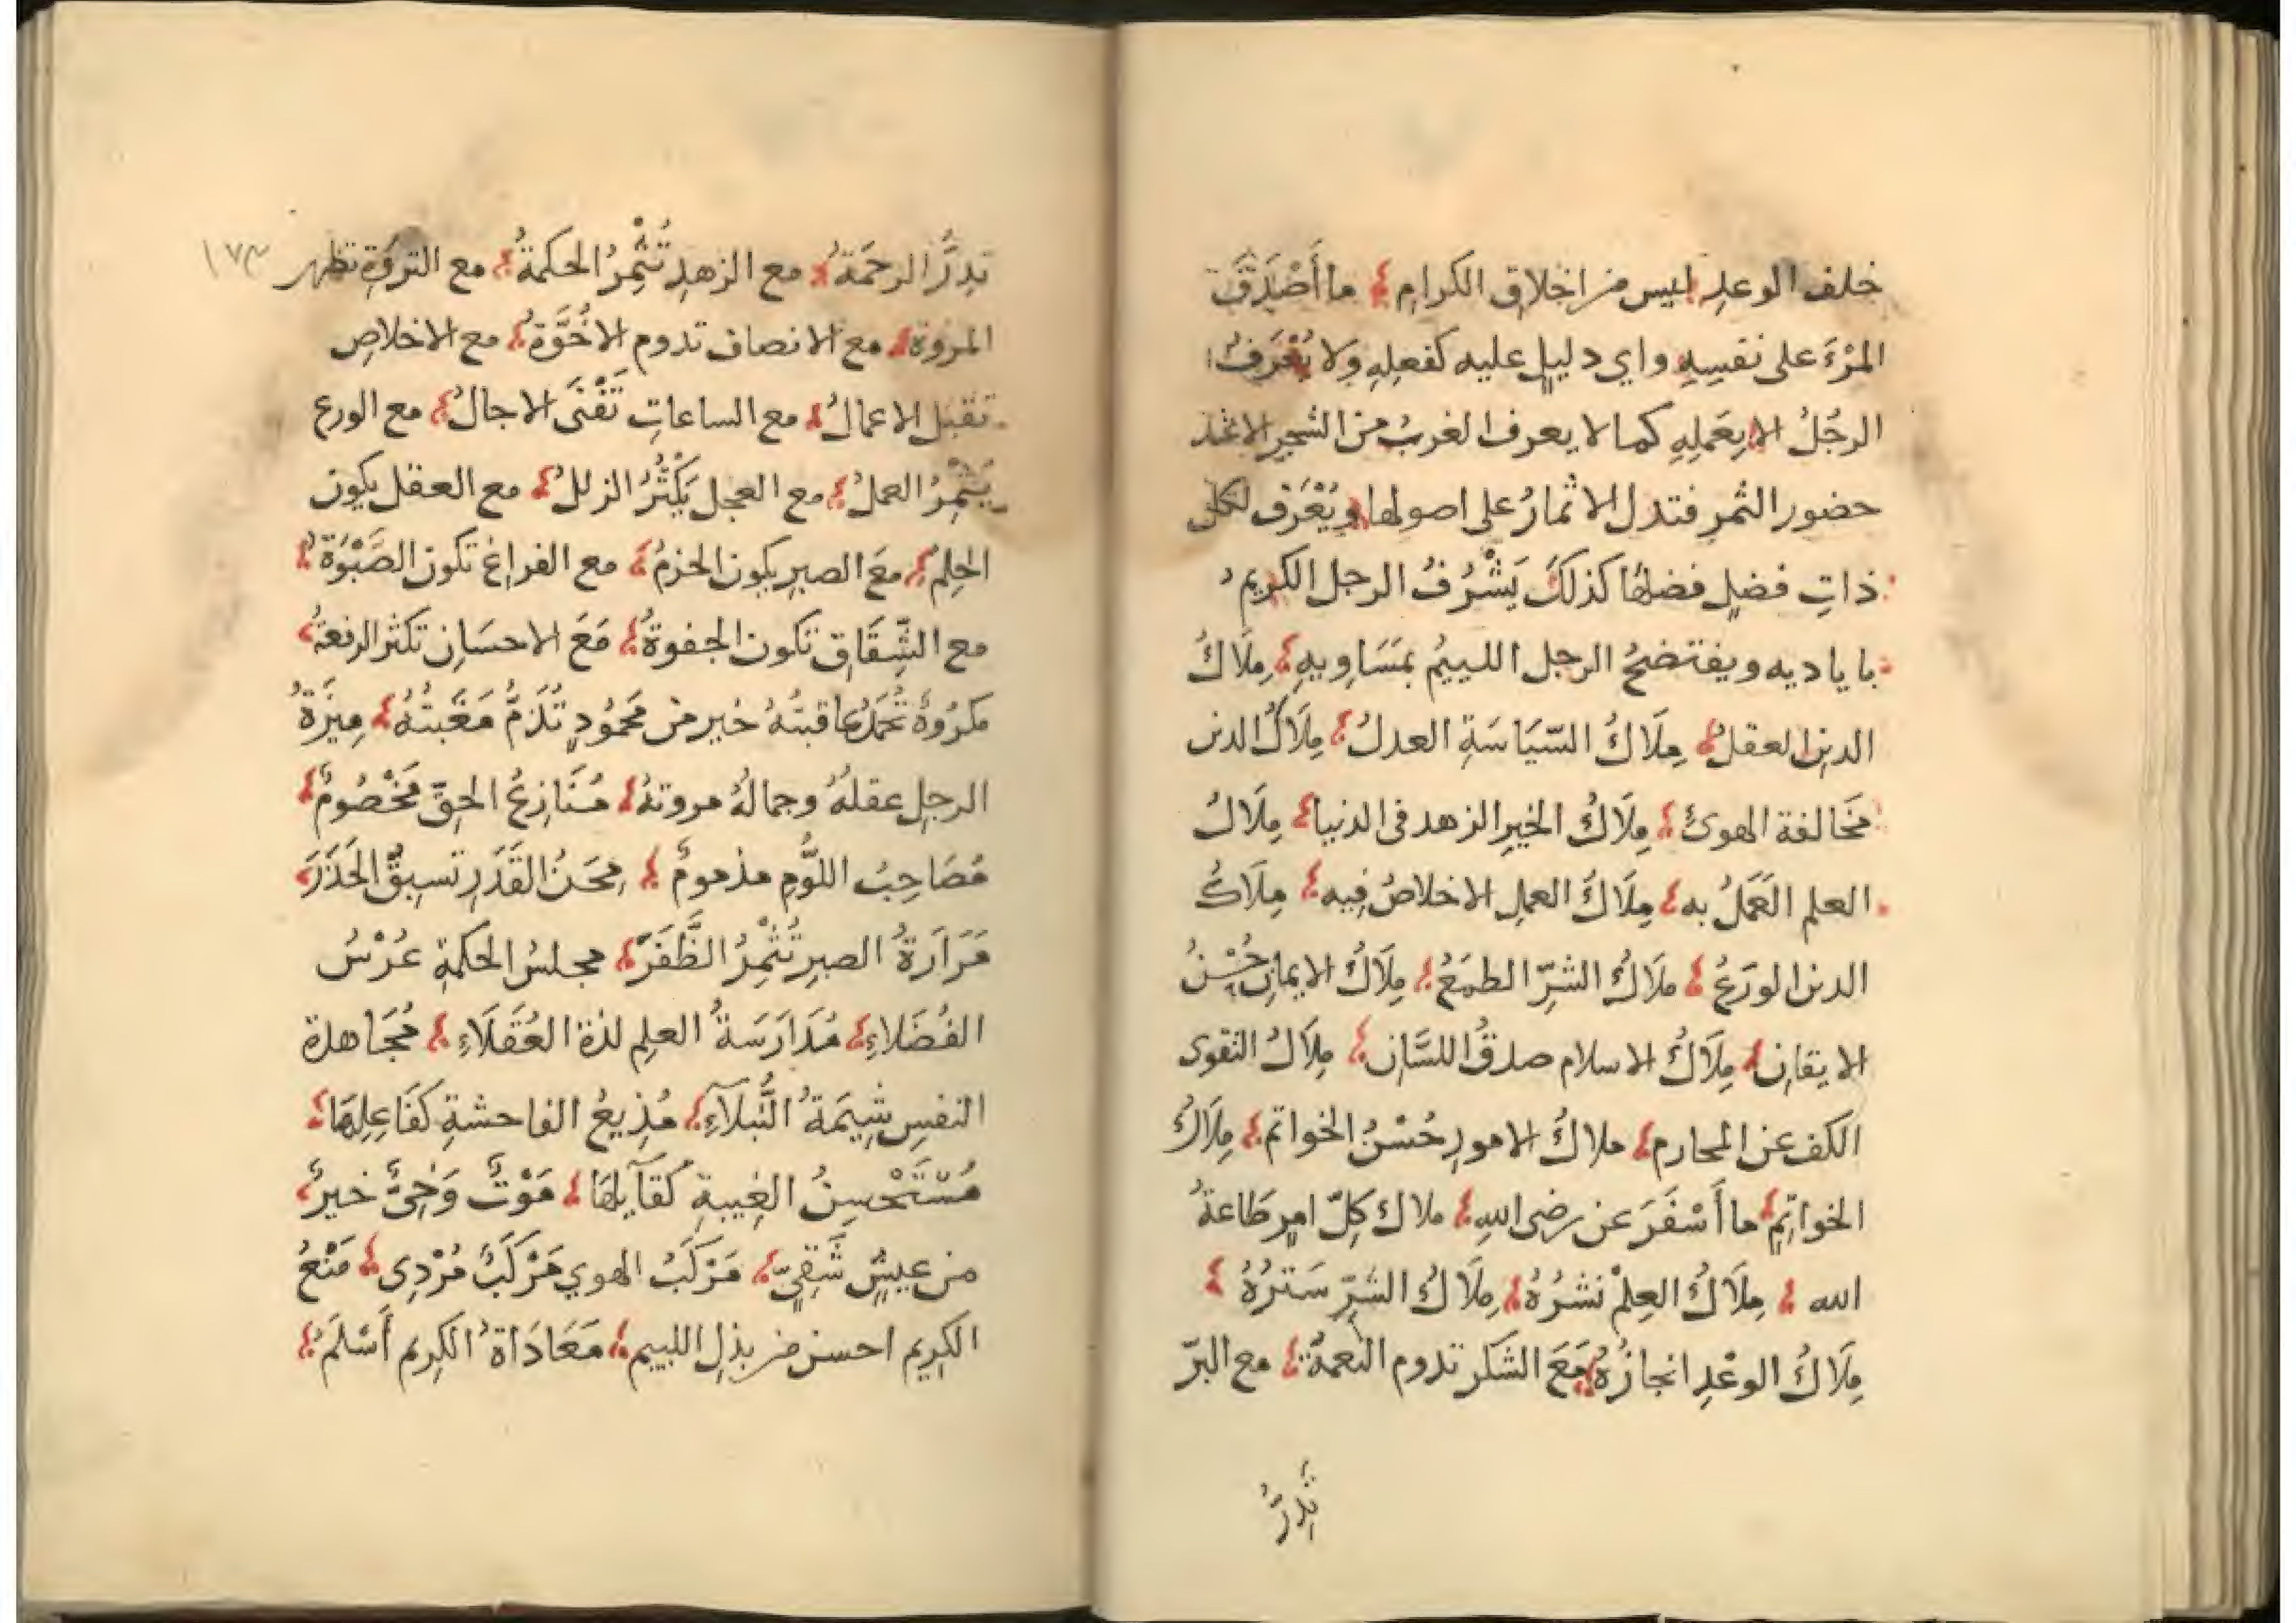 خلف الوعدِ ليس من اخلاق الكرامِ ما أَصْدَقَ
المرْءَ على نفسِهِ واي دليلٍ عليه كفعلِهِ ولا يُعْرَفُ
الرجُلُ الا بِعَمَلِهِ كما لا يعرف الغريبُ من الشجرِ الا عند
حضور الثمرِ فتدل الاثمارُ على اصولها ويُعْرَف لكل
ذاتِ فضلٍ فضلُها كذلكَ يَشْرُفُ الرجل الكريم
باياديه ويفتضحُ الرجل اللييمُ بمَسَاوِيهِ مِلَاكُ
الدينِ العقلُ مِلَاكُ السّيَاسَةِ العدلُ مِلَاكُ الدين
مخَالفة الهوىٰ مِلَاكُ الخيرِ الزهد فى الدنيا مِلَاكُ
العلم العَمَلُ به مِلَاكُ العملِ الاخلاصُ فِيه مِلَاكُ
الدين الورَعُ ملَاكُ الشرِّ الطمَعُ مِلَاكُ الايمانِ حُسْنُ
الايقانِ مِلَاكُ الاسلام صدقُ اللسَّانِ مِلَاكُ التقوى
الكف عن المحارم ملاكُ الامورِ حُسْنُ الخواتم مِلَاكُ
الخواتِمِ ما أَسْفَرَ عن رضى اللهِ ملاك كلّ امرٍ طَاعةُ
الله مِلَاكُ العِلمْ نشرُهُ مِلَاكُ الشرِّ سَترُهُ
مِلَاكُ الوعْدِ انجازُهُ مَعَ الشكر تدوم النعمةُ مع البرّ
تدرُّ
تدِرُّ الرحمَةُ مع الزهدِ تُثْمِرُ الحكمةُ مع الثروَةِ تظهر
١٧٣
المروة مع الانصاف تدوم الاخُوَّةُ مع الاخلاصِ
تقبل الاعمالُ مع الساعاتِ تَفْنَى الاجالُ مع الورع
يُثْمِرُ العملُ مع العجل يَكْثُرُ الزللُ مع العقل يكون
الحِلمُ معَ الصبرِ يكون الحزمُ مع الفراغِ تكون الصَّبْوَةُ
مع الشِّقَاقِ تكون الجفوةُ مَعَ الاحسَانِ تكثر الرفعةُ
مكرُوهٌ تحمَدُ عاقبتُهُ خير من محمُودٍ تُذَمُّ مَغَبتُهُ مِيزَةُ
الرجلِ عقلهُ وجمالهُ مروتهُ مُنَازِعُ الحقِّ مَخْصُومٌ
مُصَاحِبُ اللوُّمِ مذمومٌ مِحَنُ القَدَرِ تَسبِقُ الحَذَرَ
مَرَارَةُ الصبرِ تُثْمِرُ الظَّفَرَ مجلسُ الحكمةِ عُرْسُ
الفُضَلاءِ مُدَارَسَةُ العلِم لذة العُقَلَاءِ مُجَاهدة
النفسِ شِيَمَةُ النُّبلَآءِ مُذِيعُ الفاحشةِ كفَاعِلِهَا
مُسْتَحْسِنُ الغِيبةِ كقَآيلِهَا مَوْتٌ وَحِيٌّ خيرٌ
من عيشٍ شَقِيٍّ مَرْكَبُ الهوي مَرْكَبٌ مُرْدِى مَنْعُ
الكرِيم احسن من بذلِ اللييم مَعَادَاةُ الكريم أَسْلَمُ